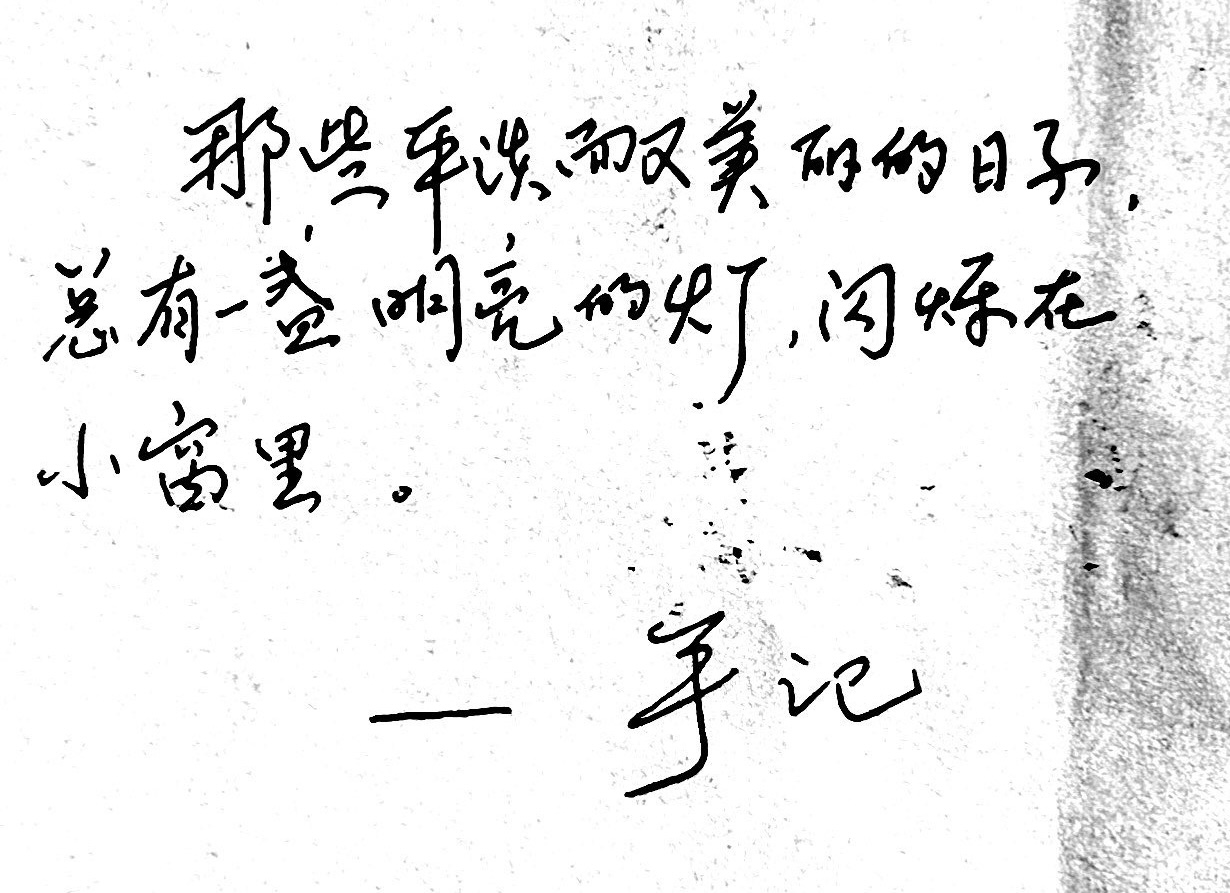 那些平淡而又美丽的日子，
总有一盏明亮的灯，闪烁在
小窗里。
— 手记